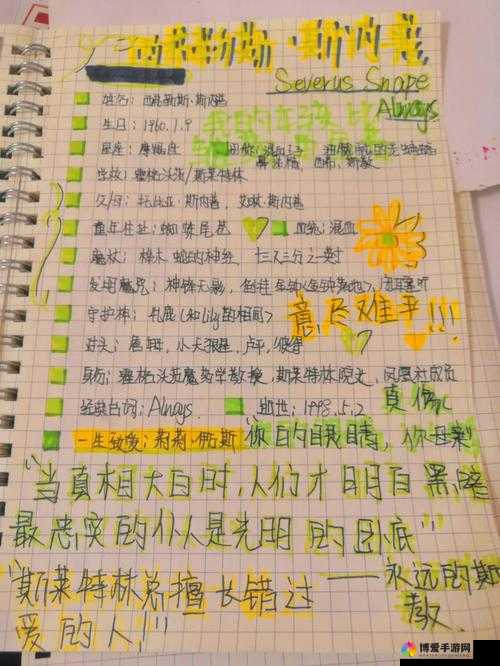 西弗勒斯·斯内普
Severus Snape
Always
姓名：西弗勒斯·斯内普
生日：1960.1.9
星座：摩羯座
学校：霍格沃茨/斯莱特林
父/母：托比亚·斯内普，艾琳·斯内普
童年住址：蜘蛛尾巷
血统：混血
魔杖：
十三又三分之一英寸
发明魔咒：神锋无影，倒挂金钟(金钟落地)，闭耳塞听
守护神：牝鹿(和lily的相同)
意难平!!!
对头：詹姆，小天狼星，卢平，彼得
身份：霍格沃茨魔药学教授，斯莱特林院长，凤凰社成员
经典台词：Always.
逝世：1998.5.2
一生敬爱：莉莉·伊万斯
"当真相大白时，人们才明白黑暗
最忠实的仆人是光明的卧底"
"斯莱特林总擅长错过
爱的人!!"
——永远的斯
教
博爱手游网